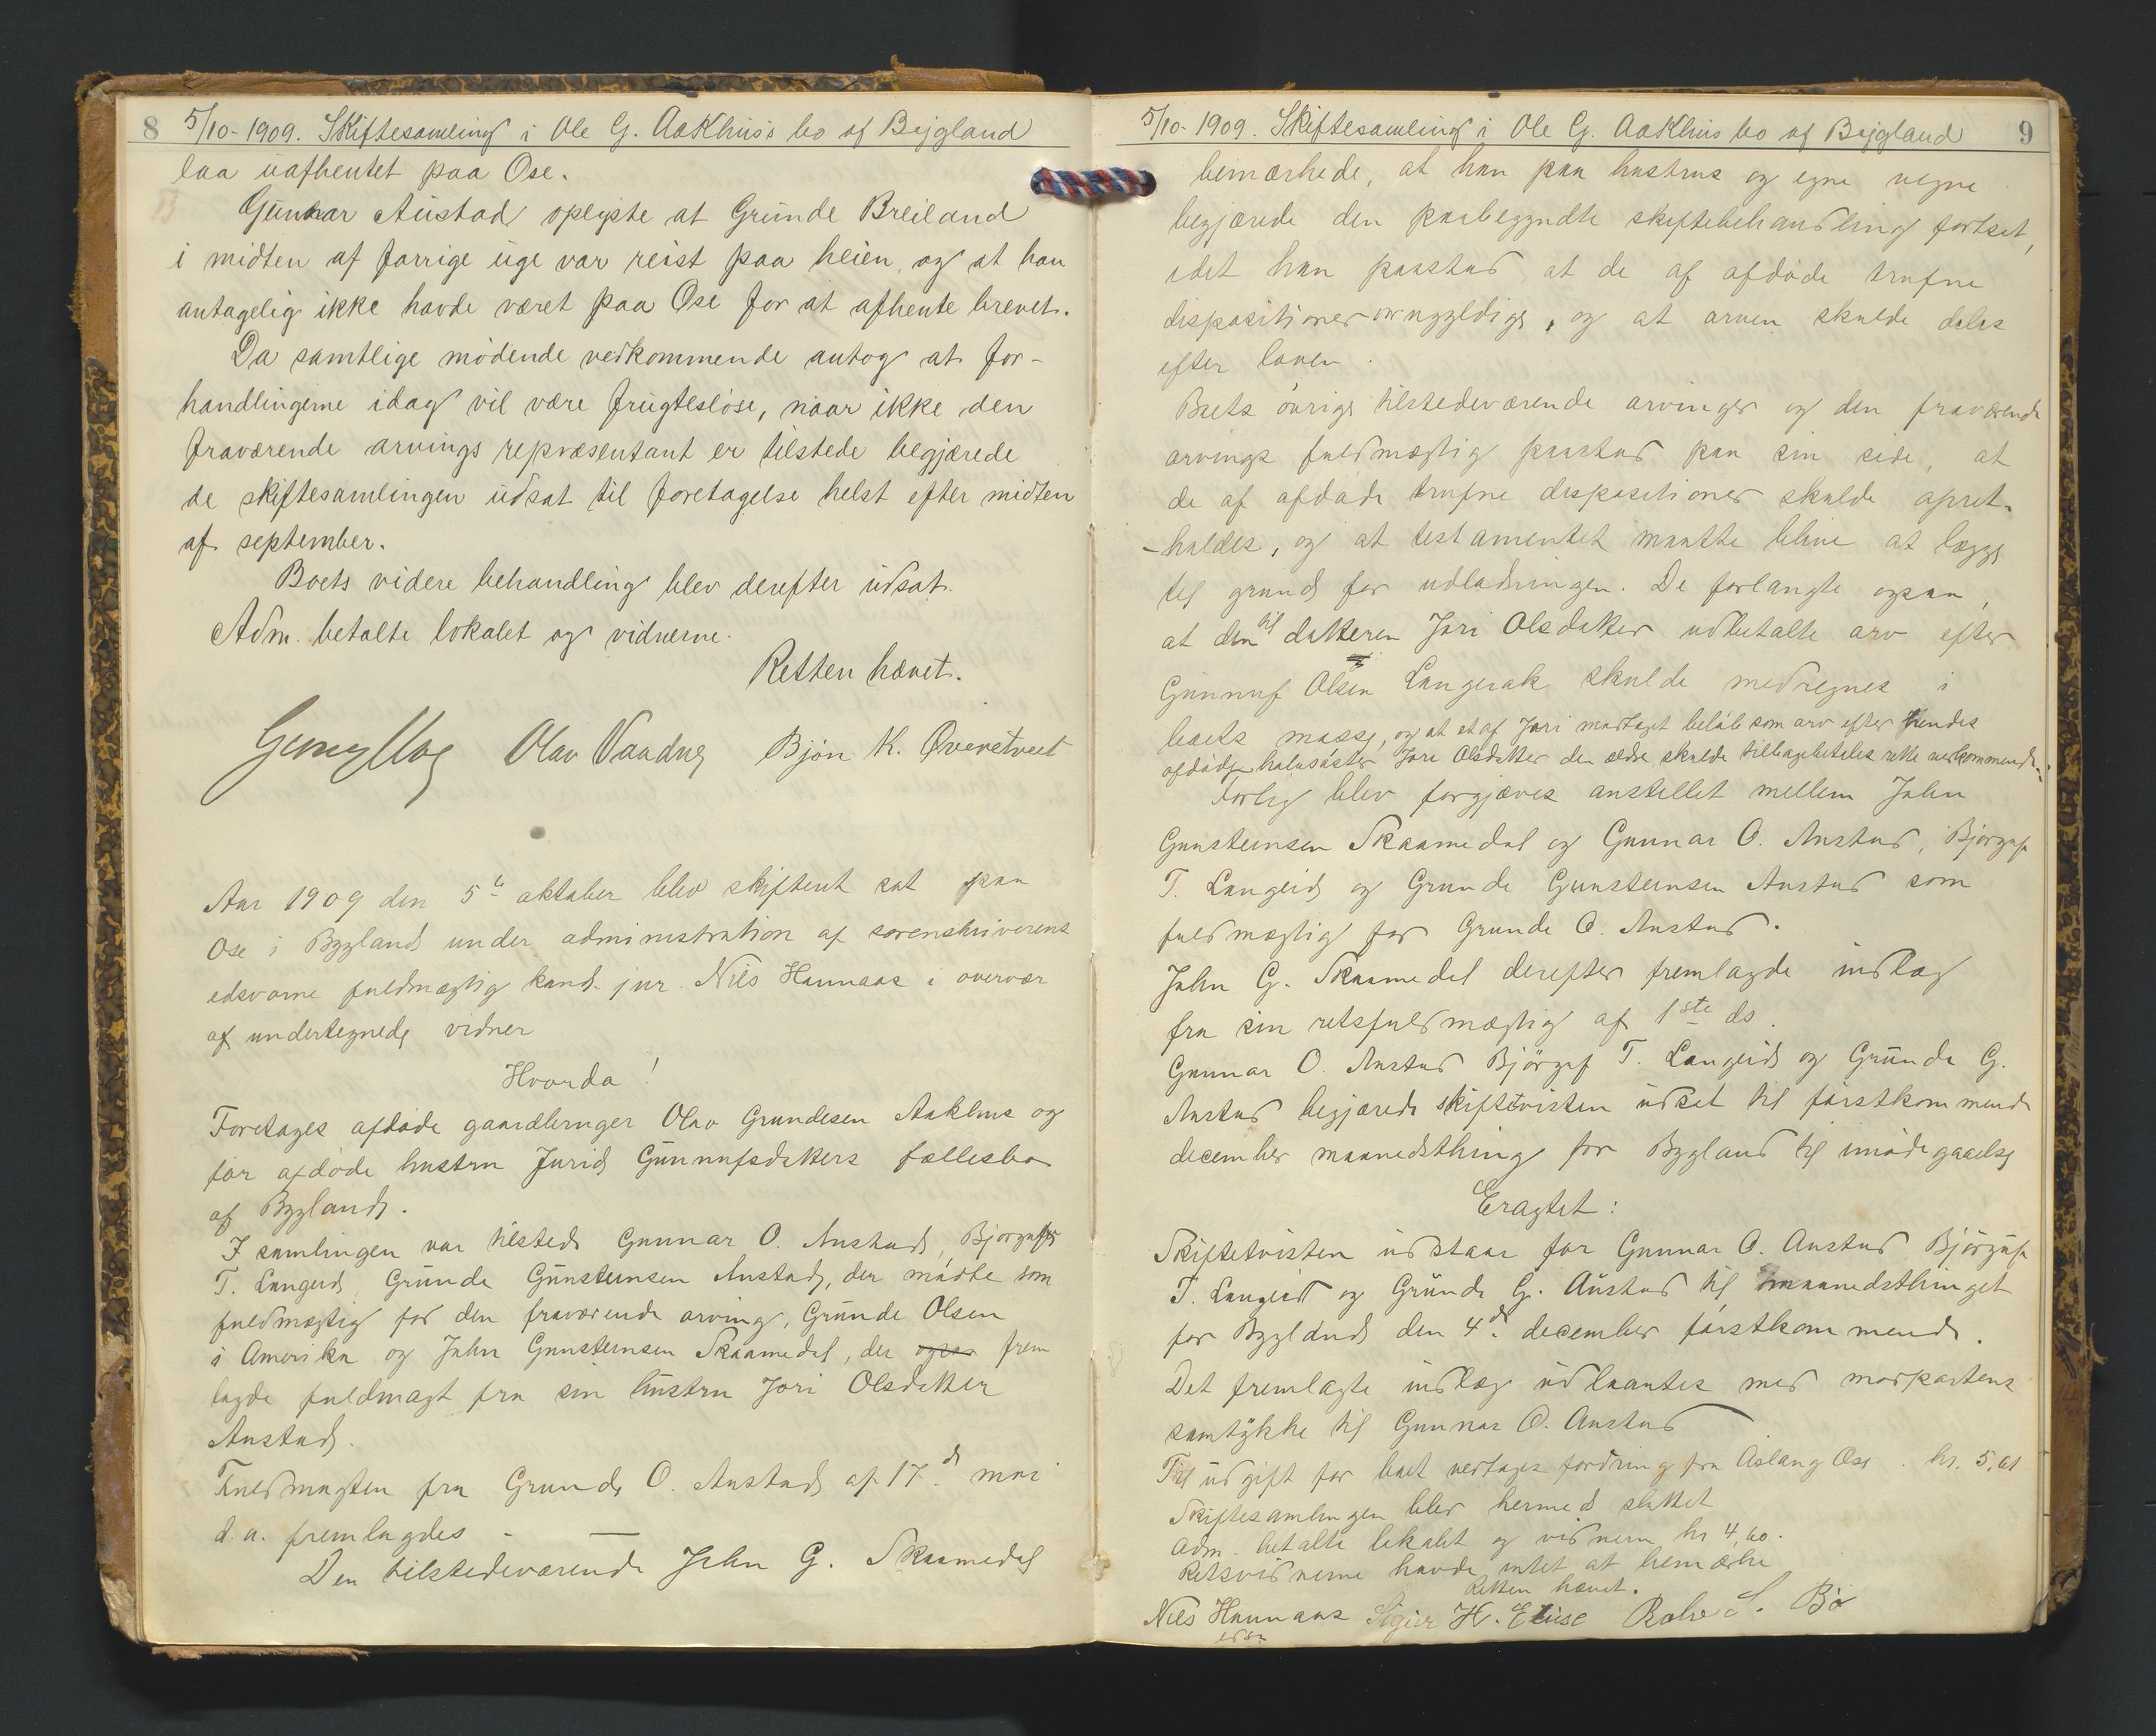 8 5/10-1909. Skiftesamling i Ole G. Aakhus's bo af Bygland
laa uafhentet paa Ose.
Gunnar Austad oplyste at Grunde Breiland
i midten af forrige uge var reist paa heien, og at han
antagelig ikke havde været paa Ose for at afhente brevet.
Da samtlige mødende vedkommende antog at for-
handlingerne idag vil være frugtesløse, naar ikke den
fraværende arvings repræsentant er tilstede begjærede
de skiftesamlingen udsat til foretagelse helst efter midten
af september.
Boets videre behandling blev derefter udsat.
Adm. betalte lokalet og vidnerne.
Retten hævet.
Olav Vandug Bjøn K. Øvenetveet
Aar 1909 den 5te oktober blev skifteret sat paa
Ose i Bygland under administration af sorenskriverens
edsvorne fuldmægtig kand. jur. Nils Hannaas i overvær
af undertegnede vidner
Hvorda!
Foretages afdøde gaardbruger Olav Grundesen Aakhus og
før afdøde hustru Jurid Gunnufsdatters fællesbo
af Bygland.
I samlingen var tilstede Gunnar O. Austad, Bjørguf
T. Langeid, Grunde Gunsteinsen Austad, der mødte som
fuldmægtig for den fraværende arving, Grunde Olsen
i Amerika og John Gunsteinsen Skaamedal, der ogsaa frem
lagde fuldmagt fra sin hustru Jori Olsdatter
Austad.
Fuldmagten fra Grunde O. Austad af 17d mai
d.a. fremlagdes
Den tilstedeværende John G. Skaamedal
5/10-1909. Skiftesamling i Ole G. Aakhus bo af Bygland 9
bemærkede, at han paa hustrus og egne vegne
begjærede den paabegyndte skiftebehandling fortsat,
idet han paastod at de af afdøde trufne
dispositioner var ugyldige, og at arven skulde deles
efter loven.
Boets øvrige tilstedeværende arvinger og den fraværende
arvings fuldmægtig paastod paa sin side, at
de af afdøde trufne dispositioner skulde opret-
-holdes, og at testamentet maatte blive at lægge
til grund for udlodningen. De forlangte ogsaa,
at den til datteren Jori Olsdatter udbetalte arv efter
Gunnuf Olsen Langerak skulde medregnes i
boets masse, og at et af Jori modtaget beløb som arv efter hendes
afdøde halvsøster Jore Olsdatter den ældre, skulde tilbagebetales rette vedkommende.
Forlig blev forgjæves anstillet mellem John
Gunsteinsen Skaamedal og Gunnar O. Austad, Bjørguf
T. Langeid og Grunde Gunsteinsen Austad som
fuldmægtig for Grunde O. Austad.
John G. Skaamedal derefter fremlagde indlæg
fra sin retsfuldmægtig af 1ste ds.
Gunnar O. Austad Bjørguf T. Langeid og Grunde G.
Austad begjærede skiftetvisten udsat til førstkommende
december maanedsthing for Bygland til imødegaaelse
Eragtet:
Skiftetvisten udstaar for Gunnar O. Austad Bjørguf
T. Langeid og Grunde G. Austad til maanedsthinget
for Bygland den 4de december førstkommende.
Det fremlagte indlæg udlaantes med modpartens
samtykke til Gunnar O. Austad
Til udgift for boet vedtages fordring fra Aslaug Ose kr. 5,61
Skiftesamlingen blev hermed sluttet
Adm. betalte lokalet og vidnerne kr 4,60.
Retsvidnerne havde intet at bemærke
Retten hævet.
Nils Hannaas Sigur H. Bø
edsv.